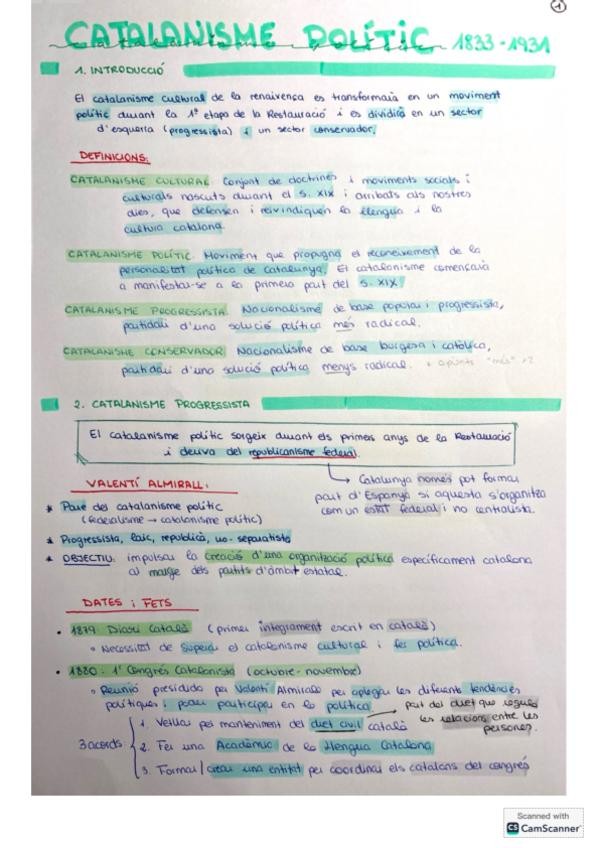 1
CATALANISME POLÍTIC 1833-1931
1. INTRODUCCIÓ
El catalanisme cultural de la renaixença es transformarà en un moviment
polític durant la 1ª etapa de la Restauració i es dividirà en un sector
d'esquerra (progressista) i un sector conservador.
DEFINICIONS:
CATALANISME CULTURAL. Conjunt de doctrines i moviments socials i
culturals nascuts durant el s. XIX i arribats als nostres
dies, que defensen i reivindiquen la llengua i la
cultura catalana.
CATALANISME POLÍTIC. Moviment que propugna el reconeixement de la
personalitat política de Catalunya. El catalanisme començarà
a manifestar-se a la primera part del S. XIX.
CATALANISME PROGRESSISTA. Nacionalisme de base popular i progressista,
partidari d'una solució política més radical.
CATALANISME CONSERVADOR. Nacionalisme de base burgesa i catòlica,
partidari d'una solució política menys radical. + apunts "més"
2. CATALANISME PROGRESSISTA
El catalanisme polític sorgeix durant els primers anys de la Restauració
i deriva del republicanisme federal.
Catalunya només pot formar
part d'Espanya si aquesta s'organitza
com un estat federal i no centralista.
VALENTÍ ALMIRALL:
* Pare del catalanisme polític
(federalisme → catalanisme polític)
* Progressista, laic, republicà, no-separatista
* OBJECTIU: impulsar la creació d'una organització política específicament catalana
al marge dels partits d'àmbit estatal.
DATES i FETS
• 1879: Diari Català (primer íntegrament escrit en català)
◦ Necessitat de superar el catalanisme cultural i fer política.
• 1880: 1r Congrés Catalanista (octubre-novembre)
◦ Reunió presidida per Valentí Almirall per aplegar les diferents tendències
polítiques i poder participar en la política.
part del dret que regula
les relacions entre les
persones.
3 acords
1. Vetllar pel manteniment del dret civil català
2. Fer una Acadèmia de la Llengua Catalana
3. Formar/crear una entitat per coordinar els catalans del congrés
Scanned with
CS CamScanner